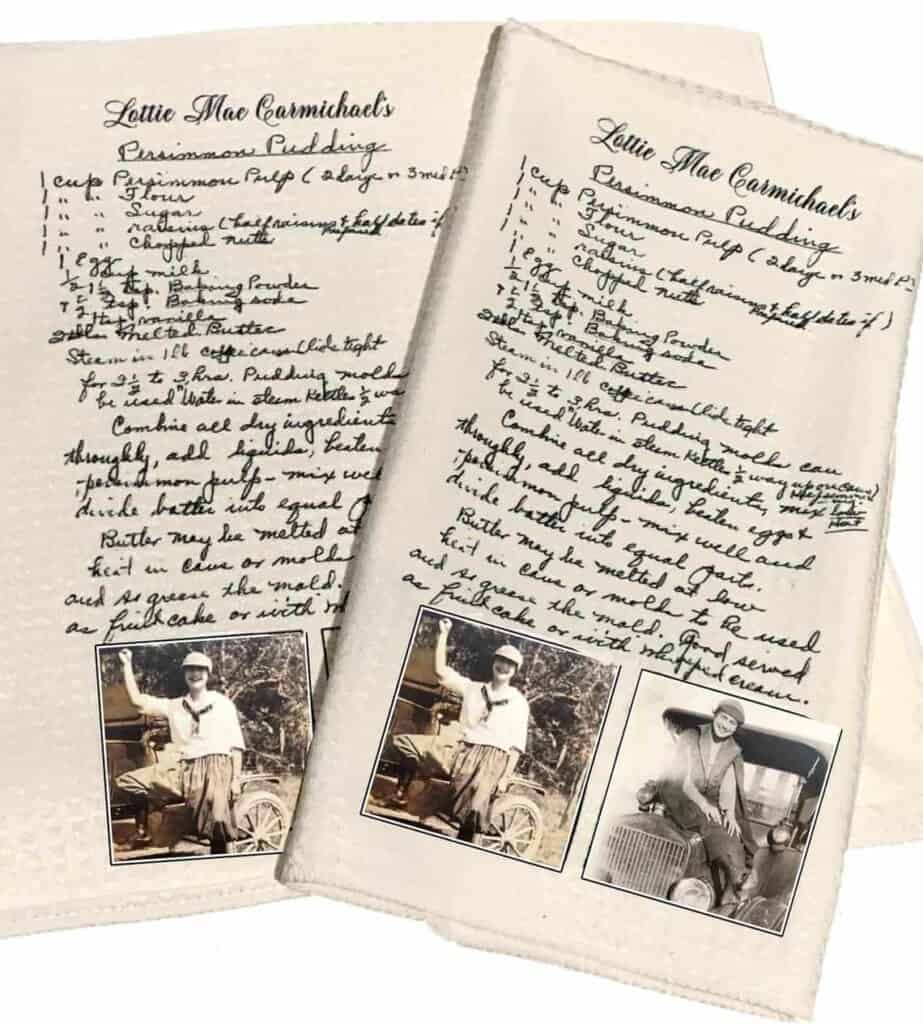 Lottie Mae Carmichael's
Persimmon Pudding
1 cup Persimmon Pulp (2 large or 3 med
1 " " Flour
1 " " Sugar
1 " " raisins (half raisins & half dates if
1 " " Chopped nuts
1 Egg
1/2 cup milk
1 1/2 tsp. Baking Powder
1/2 tsp. Baking soda
1/2 tsp vanilla
Melted Butter
Steam in 1 lb coffee cans (lids tight
for 2 1/2 to 3 hrs. Pudding molds
be used Water in steam Kettle 1/2 wa
Combine all dry ingredients
throughly, add liquids, beaten
persimmon pulp - mix wel
divide batter into equal
Butter may be melted at
heat in cans or molds
and so grease the mold.
as fruit cake or with
Lottie Mae Carmichael's
Persimmon Pudding
1 cup Persimmon Pulp (2 large or 3 med
1 " " Flour
1 " " Sugar
1 " " raisins (half raisins & half dates if )
1 " " Chopped nuts
1 Egg
1/2 cup milk
1 1/2 tsp. Baking Powder
1/2 tsp. Baking soda
1/2 tsp vanilla
Melted Butter
Steam in 1 lb coffee cans (lids tight
for 2 1/2 to 3 hrs. Pudding molds can
be used Water in steam Kettle 1/2 way up on cans)
Combine all dry ingredients, mix
throughly, add liquids, beaten eggs &
persimmon pulp - mix well and
divide batter into equal parts.
Butter may be melted at low
heat in cans or molds to be used
and so grease the mold. Good served
as fruit cake or with whipped cream.